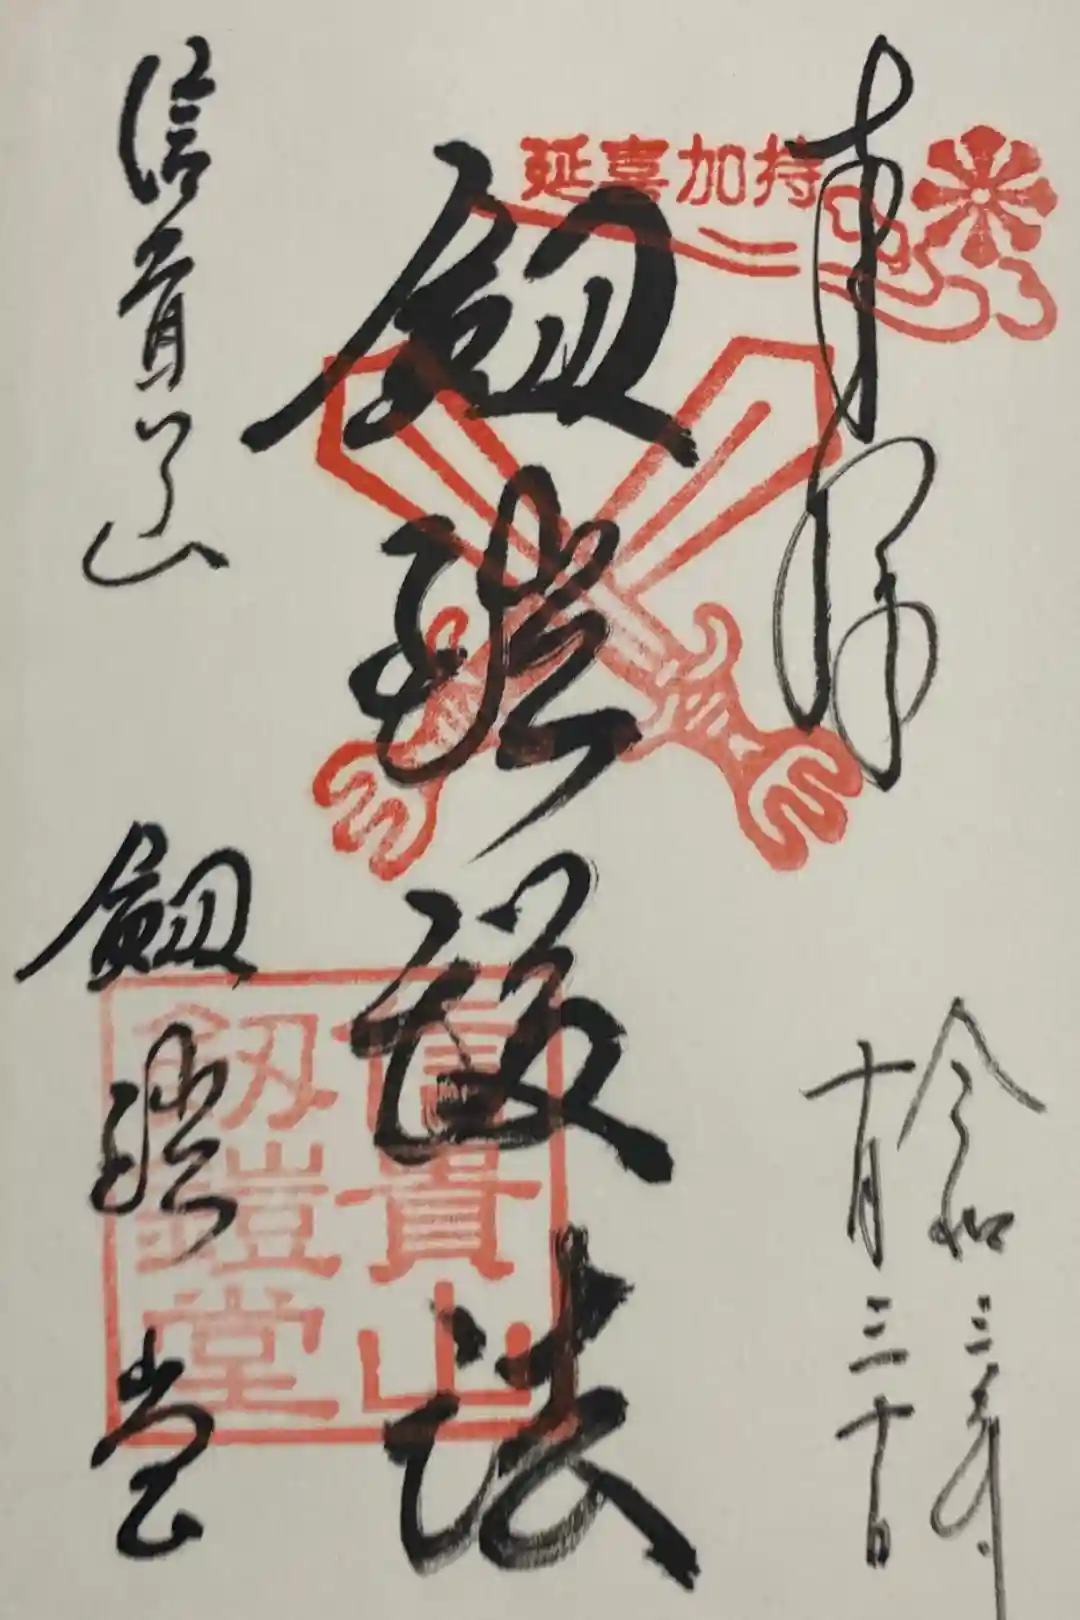 奉拝
令和三年
十月三十日
延喜加持
剱鎧護法
信貴山
剱鎧堂
信貴山
剱鎧堂